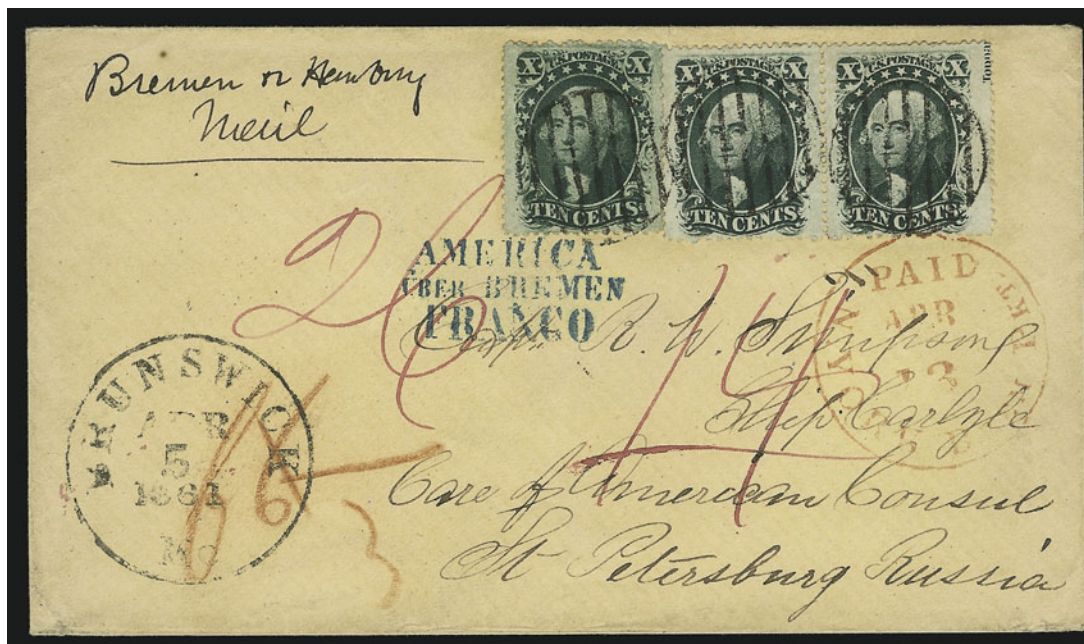 Bremen or Hamburg
Mail
X U.S.POSTAGE X
TEN CENTS
X U.S.POSTAGE X
TEN CENTS
X U.S.POSTAGE X
TEN CENTS
AMERICA
ÜBER BREMEN
FRANCO
26
PAID
APR
BRUNSWICK
APR
5
1861
Me
Capt. R. W. Simpson
Ship Carlyle
Care of American Consul
St Petersburg Russia
3